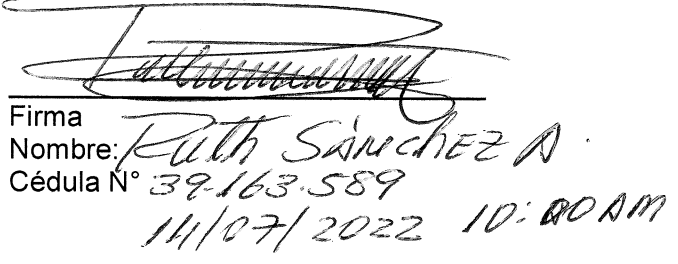 Firma
Nombre: Ruth Sánchez A.
Cédula N° 39.163.589
14/07/2022 10:00 AM